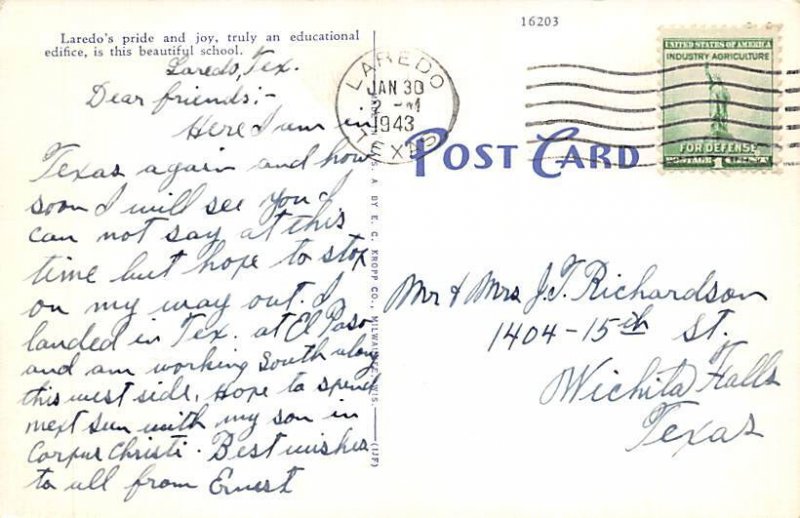 Laredo's pride and joy, truly an educational
edifice, is this beautiful school.
Laredo, Tex.
Dear friends:-
Here I am in
Texas again and how
soon I will see you I
can not say at this
time but hope to stop
on my way out. I
landed in Tex. at El Paso
and am working South along
this west side. Hope to spend
next Sun with my son in
Corpus Christi. Best wishes
to all from Ernest
A BY E. C. KROPP CO., MILWAUKEE, WIS.
(IJF)
16203
LAREDO
JAN 30
2 - M
1943
TEXAS
POST CARD
UNITED STATES OF AMERICA
INDUSTRY AGRICULTURE
FOR DEFENSE
POSTAGE 1 CENT
Mr & Mrs J.T. Richardson
1404-15th St.
Wichita Falls
Texas